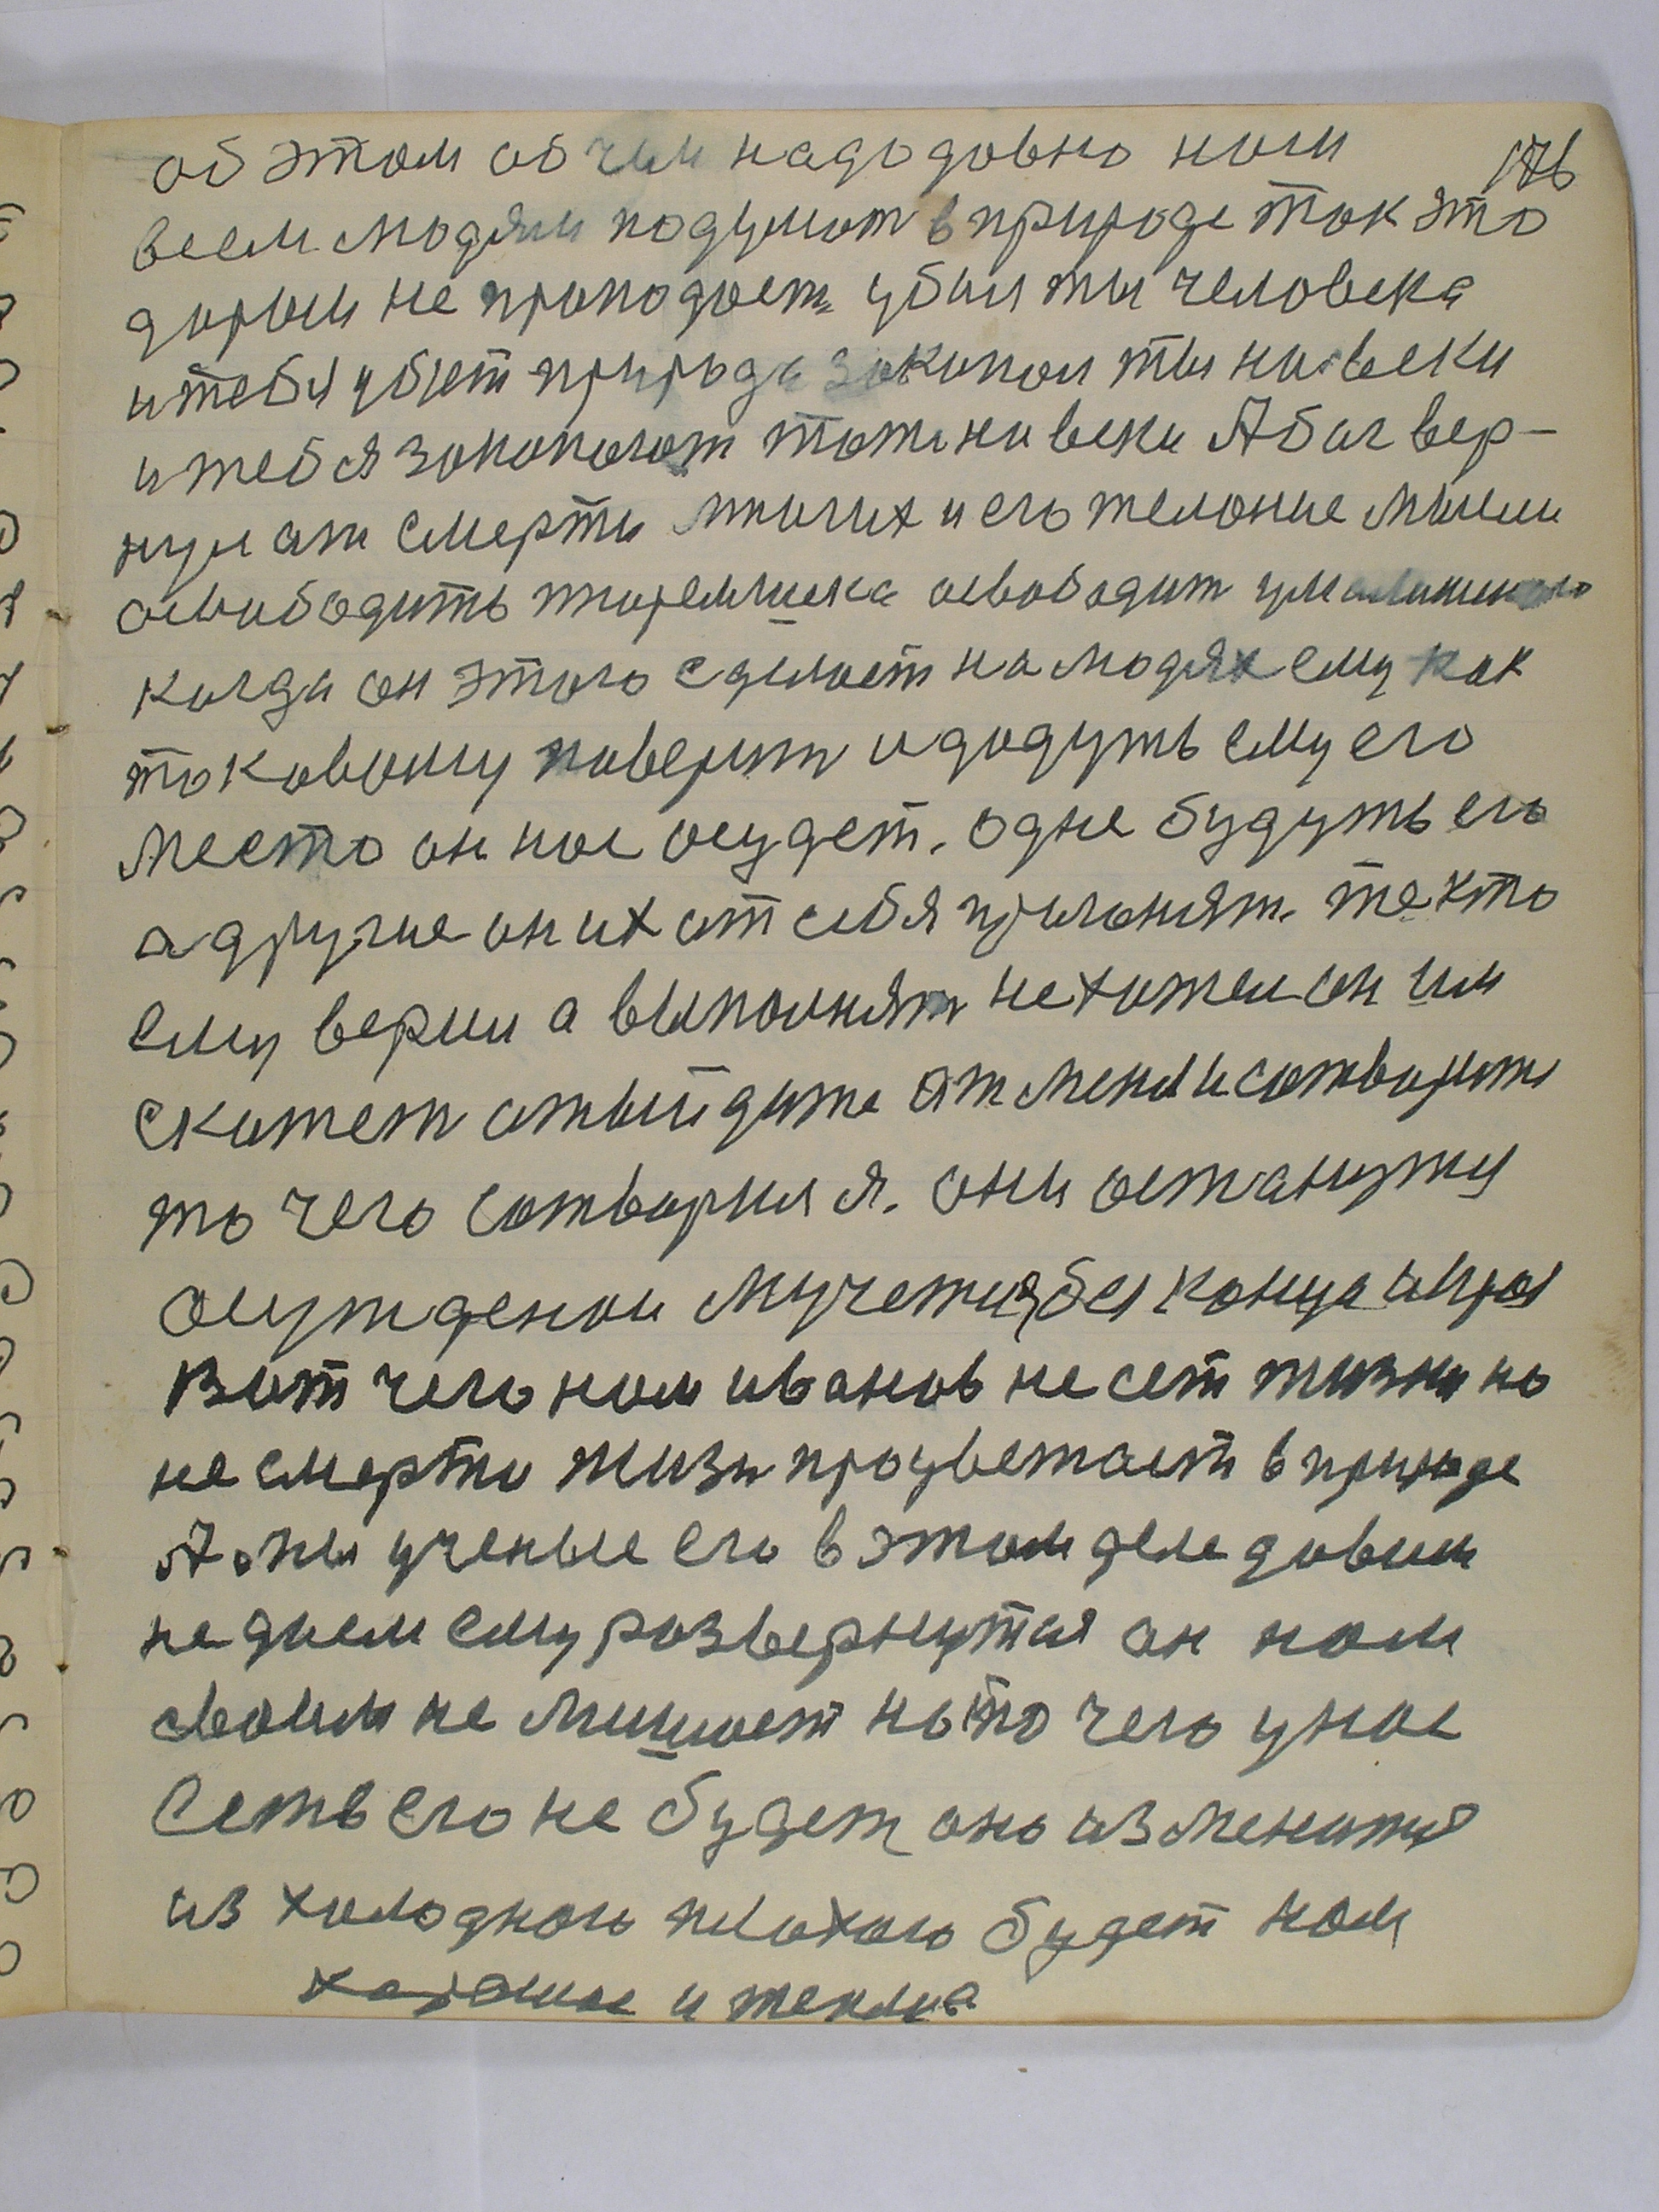 об этом об чем надо довно ном 176
всем людям подумат в природе так это
даром не проподает. убил ты человека
и тебя убъет природа закопал ты на веки
и тебя закопают тоже на веки А бог вер-
нул от смерти многих и его желание мысли
освободить тюремшика освободит умалишоного
когда он этого сделает на людях ему как
токовому поверят и дадуть ему его
место он нас осудет. одне будуть его
а другие он их от себя прогонят. те хто
ему верил а выполнят не хотел он им
скажет отыйдите от меня и сотворите
то чего сотворил я. они останутся
осуждены мучется без конца и края
Вот чего нам иванов несет жизни но
не смерти жизн процветает в природе
А мы ученые его в этом деле давим
не даем ему развернутся он нам
своим не мишает но то чего у нас
есть его не будет оно изменится
из холодного плохого будет нам
хорошое и тепло